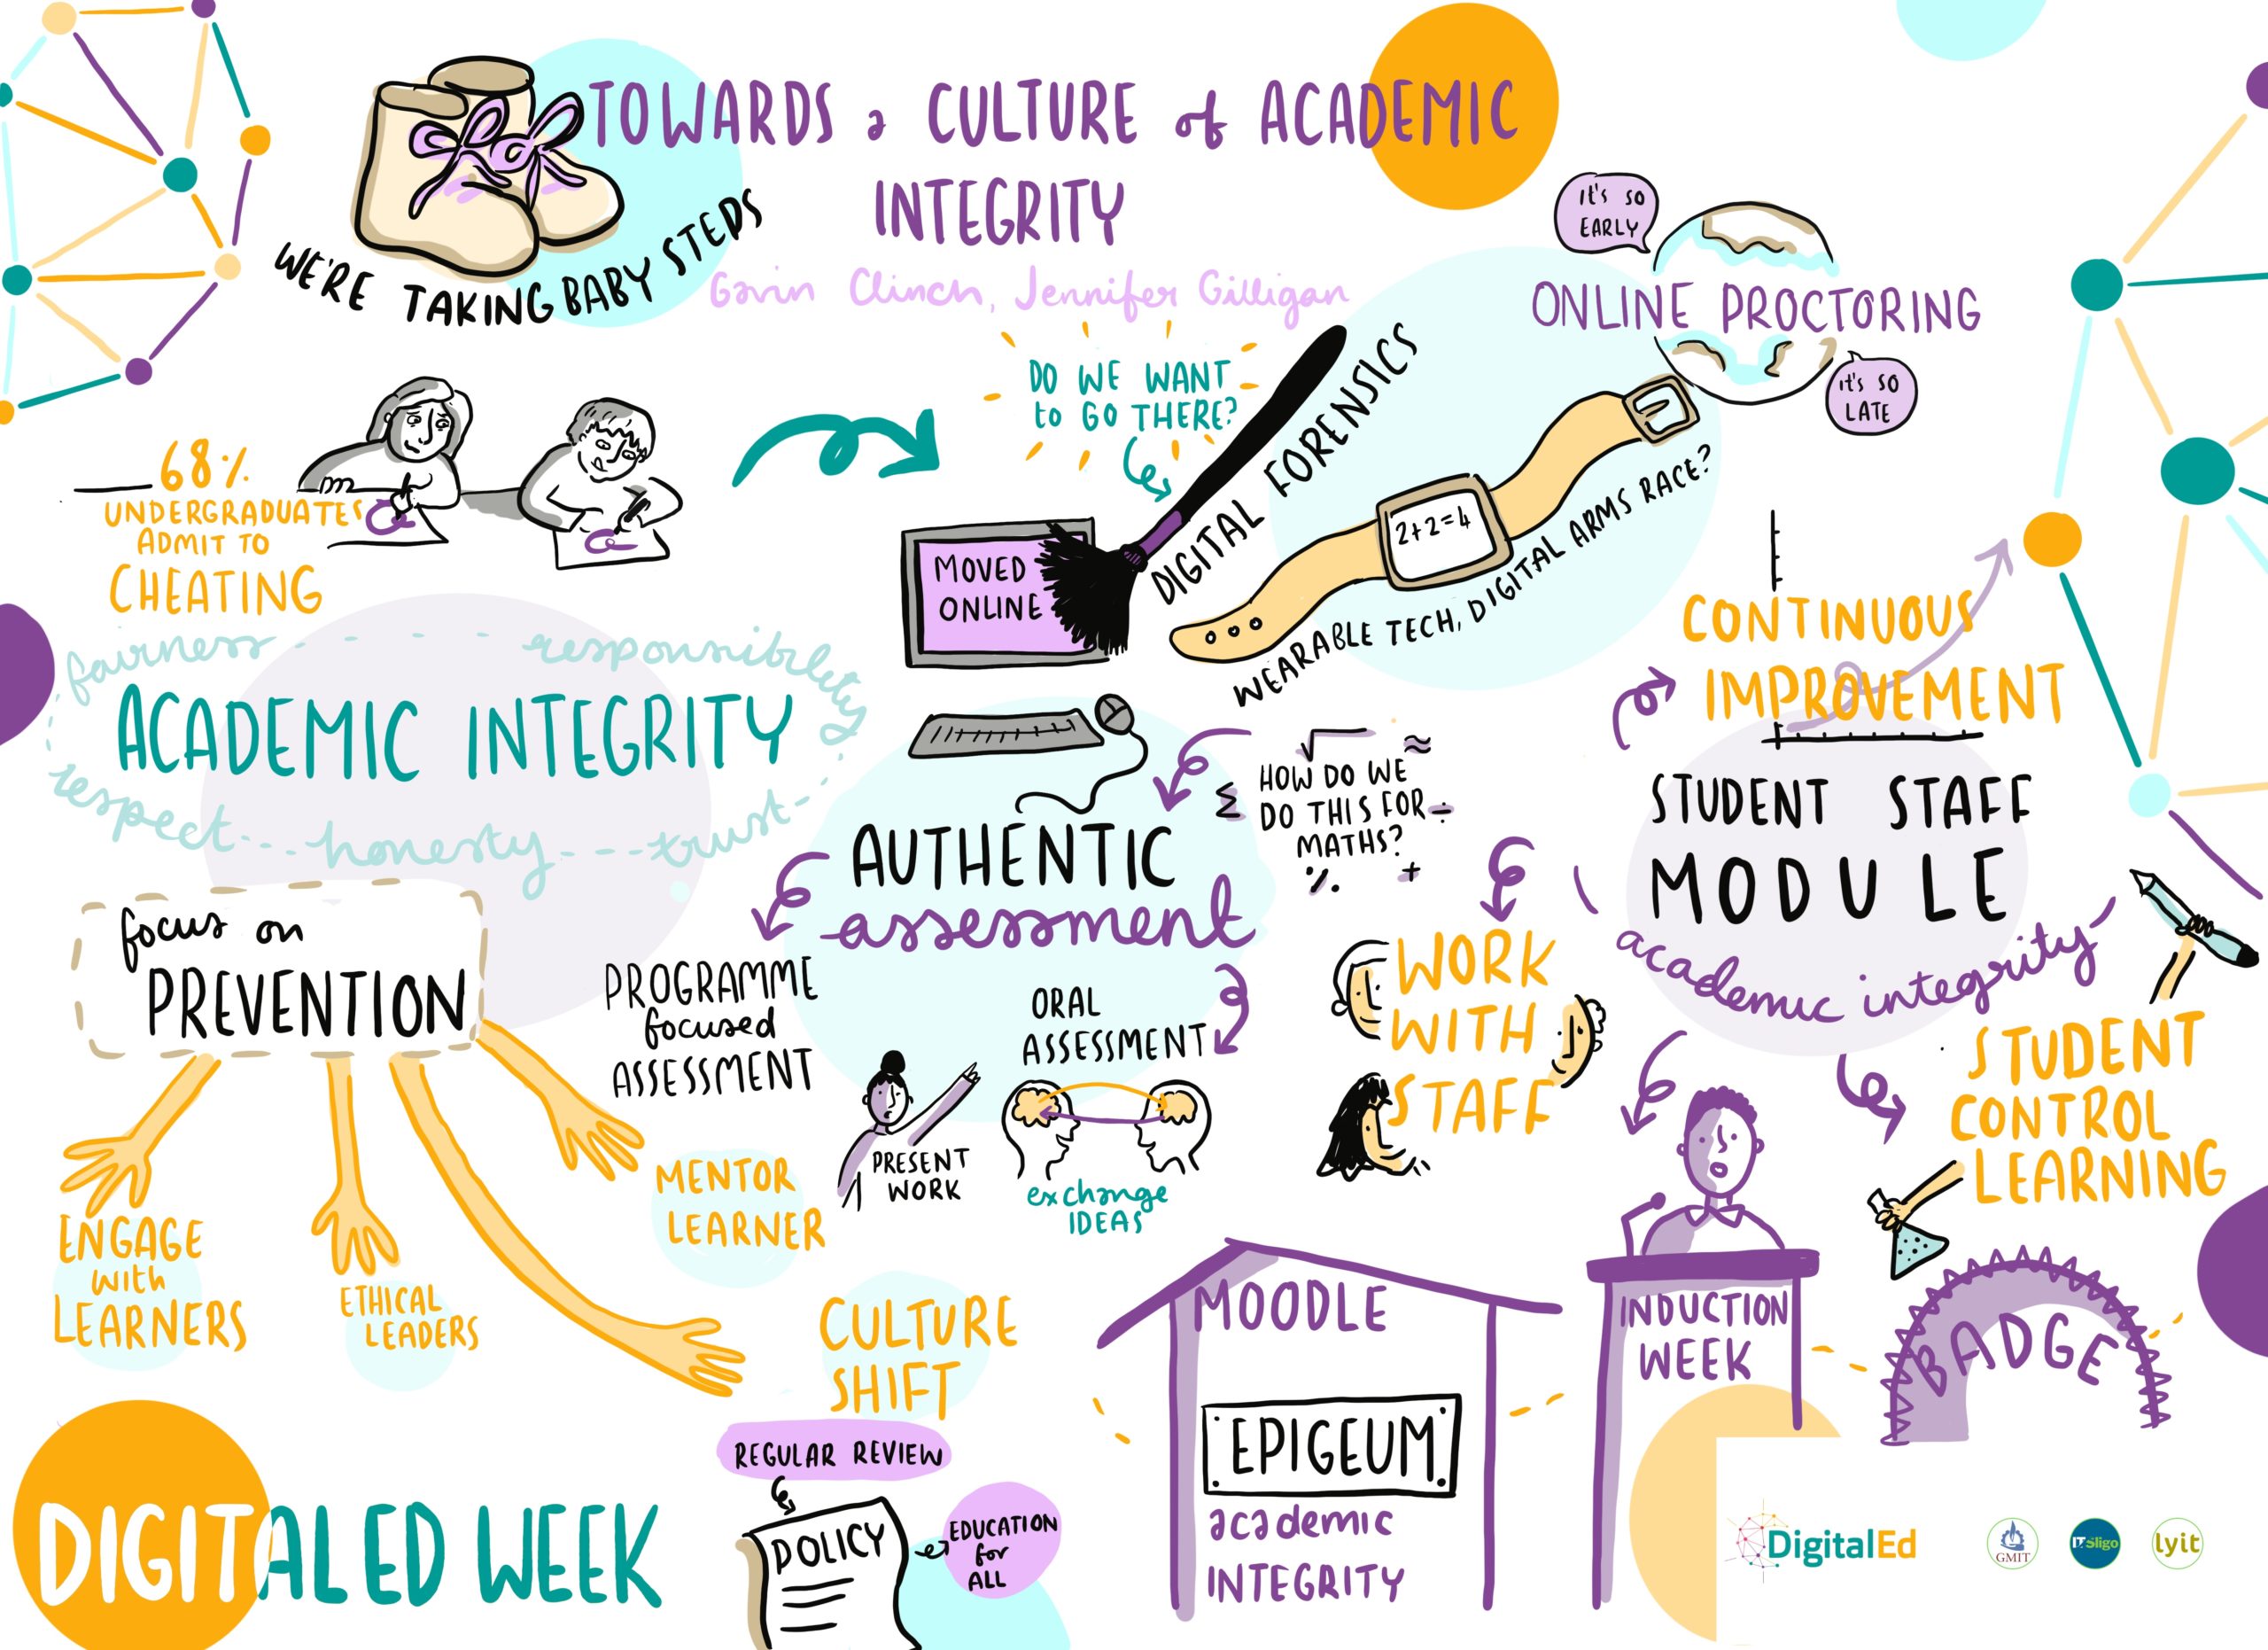 TOWARDS a CULTURE of ACADEMIC
INTEGRITY
WE'RE TAKING BABY STEPS
Gavin Clinch, Jennifer Gilligan
IT'S SO
EARLY
ONLINE PROCTORING
IT'S SO
LATE
68%
UNDERGRADUATES
ADMIT TO
CHEATING
DO WE WANT
to GO THERE?
MOVED
ONLINE
DIGITAL FORENSICS
2+2=4
WEARABLE TECH, DIGITAL ARMS RACE?
fairness
responsibility
ACADEMIC INTEGRITY
respect
honesty
trust
focus on
PREVENTION
ENGAGE
with
LEARNERS
ETHICAL
LEADERS
MENTOR
LEARNER
CULTURE
SHIFT
REGULAR REVIEW
POLICY
EDUCATION
for
ALL
AUTHENTIC
assessment
HOW DO WE
DO THIS FOR
MATHS?
PROGRAMME
focused
ASSESSMENT
PRESENT
WORK
ORAL
ASSESSMENT
exchange
IDEAS
WORK
WITH
STAFF
CONTINUOUS
IMPROVEMENT
STUDENT STAFF
MODULE
academic integrity
STUDENT
CONTROL
LEARNING
INDUCTION
WEEK
BADGE
MOODLE
EPIGEUM
academic
INTEGRITY
DIGITALED WEEK
DigitalEd
GMIT
IT Sligo
lyit